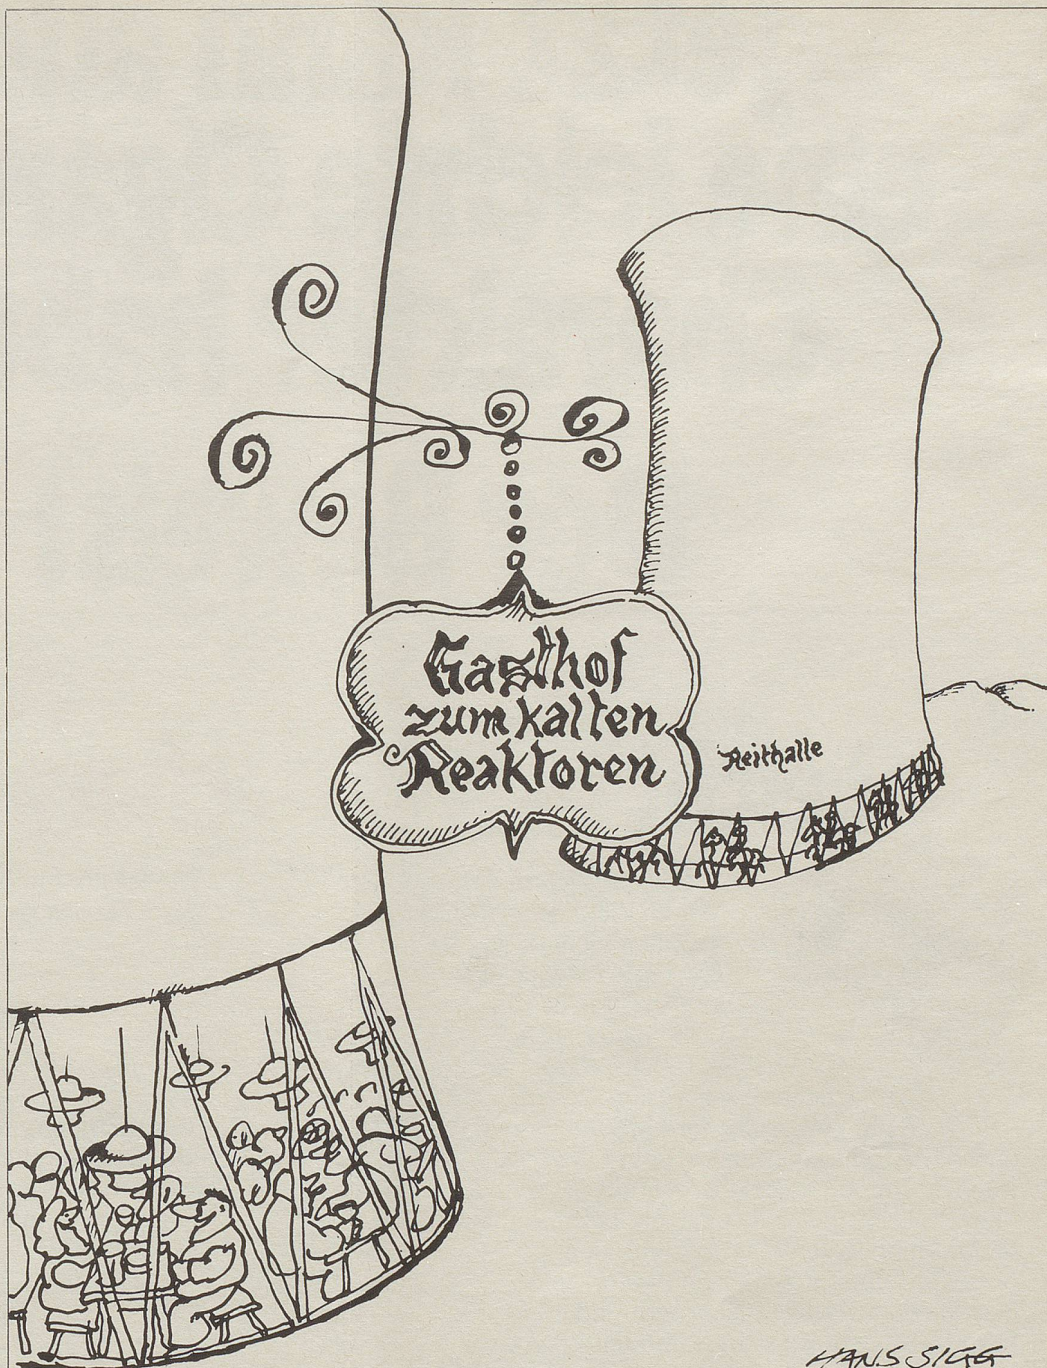 Gasthof
zum kalten
Reaktoren
Reithalle
HANS SIGG